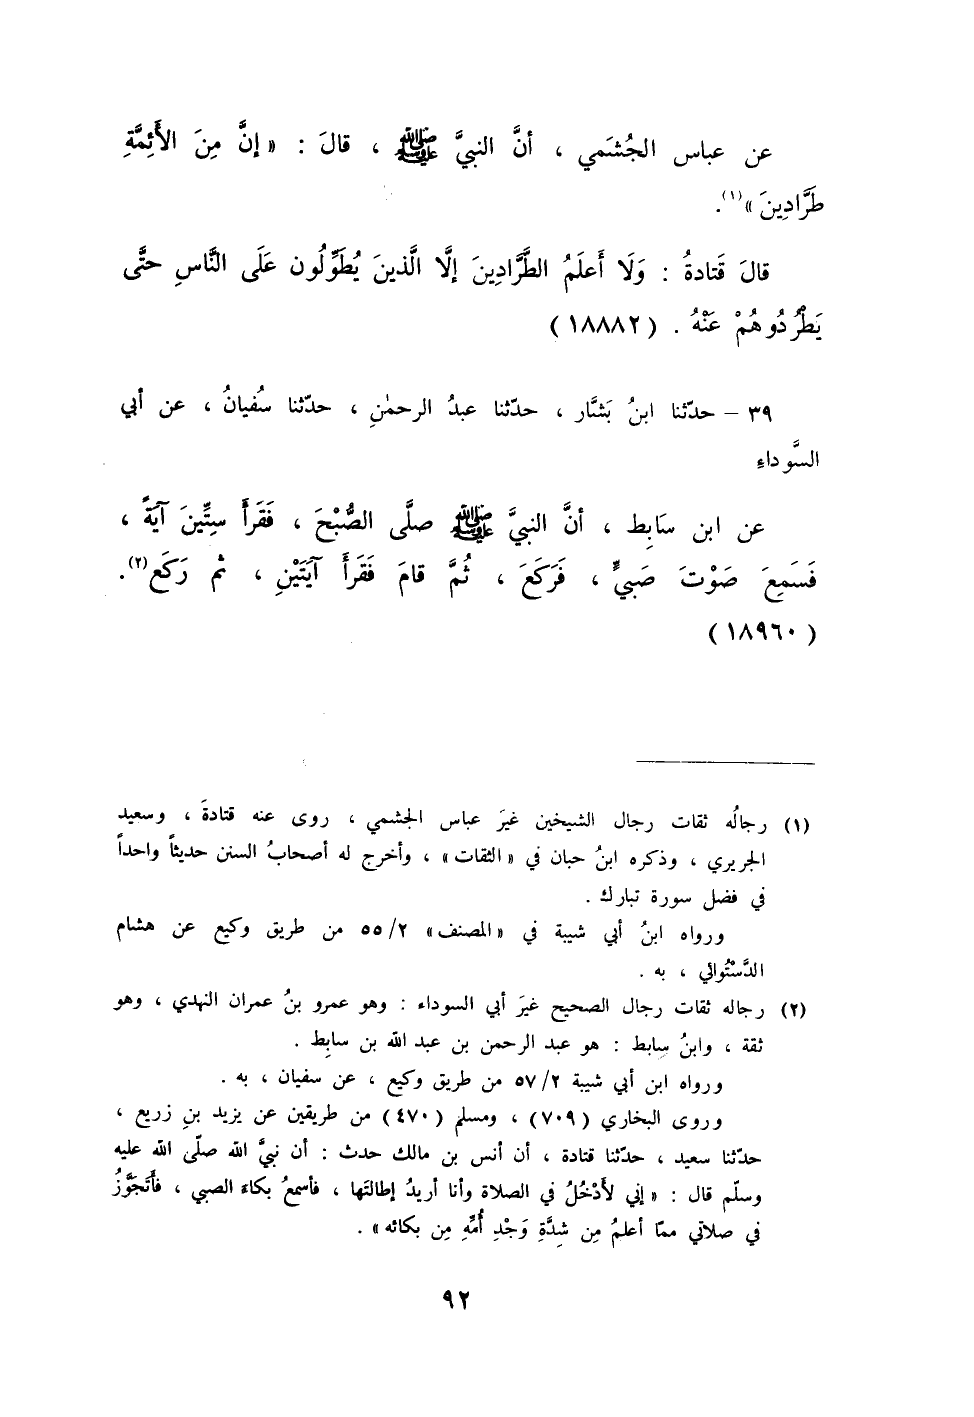 عن عباس الجُشَمي ، أنَّ النبيَّ ﷺ ، قالَ : « إنَّ مِنَ الأَئِمَّةِ
طَرَّادِينَ »(١).
قالَ قَتادةُ : وَلَا أَعلَمُ الطَّرَّادِينَ إلَّا الَّذينَ يُطَوِّلُون عَلَى النَّاسِ حتَّى
يَطْرُدُوهُمْ عَنْهُ . (١٨٨٨٢)
٣٩ – حدّثنا ابنُ بَشَّار ، حدّثنا عبدُ الرحمٰنِ ، حدّثنا سُفيانُ ، عن أبي
السَّوداءِ
عن ابن سَابِط ، أنَّ النبيَّ ﷺ صلَّى الصُّبْحَ ، فَقَرأَ سِتِّينَ آيَةً ،
فَسَمِعَ صَوْتَ صَبيٍّ ، فَرَكَعَ ، ثُمَّ قامَ فَقَرأَ آيَتَيْنِ ، ثم رَكَع(٢).
(١٨٩٦٠)
(١) رجالُه ثقات رجال الشيخين غيرَ عباس الجشمي ، روى عنه قتادةَ ، وسعيد
الجريري ، وذكره ابنُ حبان في « الثقات » ، وأخرج له أصحابُ السنن حديثاً واحداً
في فضل سورة تبارك .
ورواه ابنُ أبي شيبة في « المصنف » ٥٥/٢ من طريق وكيع عن هشام
الدَّسْتُوائي ، به .
(٢) رجاله ثقات رجال الصحيح غيرَ أبي السوداء : وهو عمرو بنُ عمران النهدي ، وهو
ثقة ، وابنُ سابط : هو عبد الرحمن بن عبد الله بن سابِط .
ورواه ابن أبي شيبة ٥٧/٢ من طريق وكيع ، عن سفيان ، به .
وروى البخاري (٧٠٩) ، ومسلم (٤٧٠) من طريقين عن يزيد بنِ زريع ،
حدّثنا سعيد ، حدّثنا قتادة ، أن أنس بن مالك حدث : أن نبيَّ الله صلّى الله عليه
وسلّم قال : « إني لأَدْخُلُ في الصلاة وأنا أريدُ إطالتَها ، فأسمعُ بكاءَ الصبي ، فأَتَجَوَّزُ
في صلاتي ممّا أعلمُ مِن شِدَّةِ وَجْدِ أُمِّهِ مِن بكائه » .
٩٢